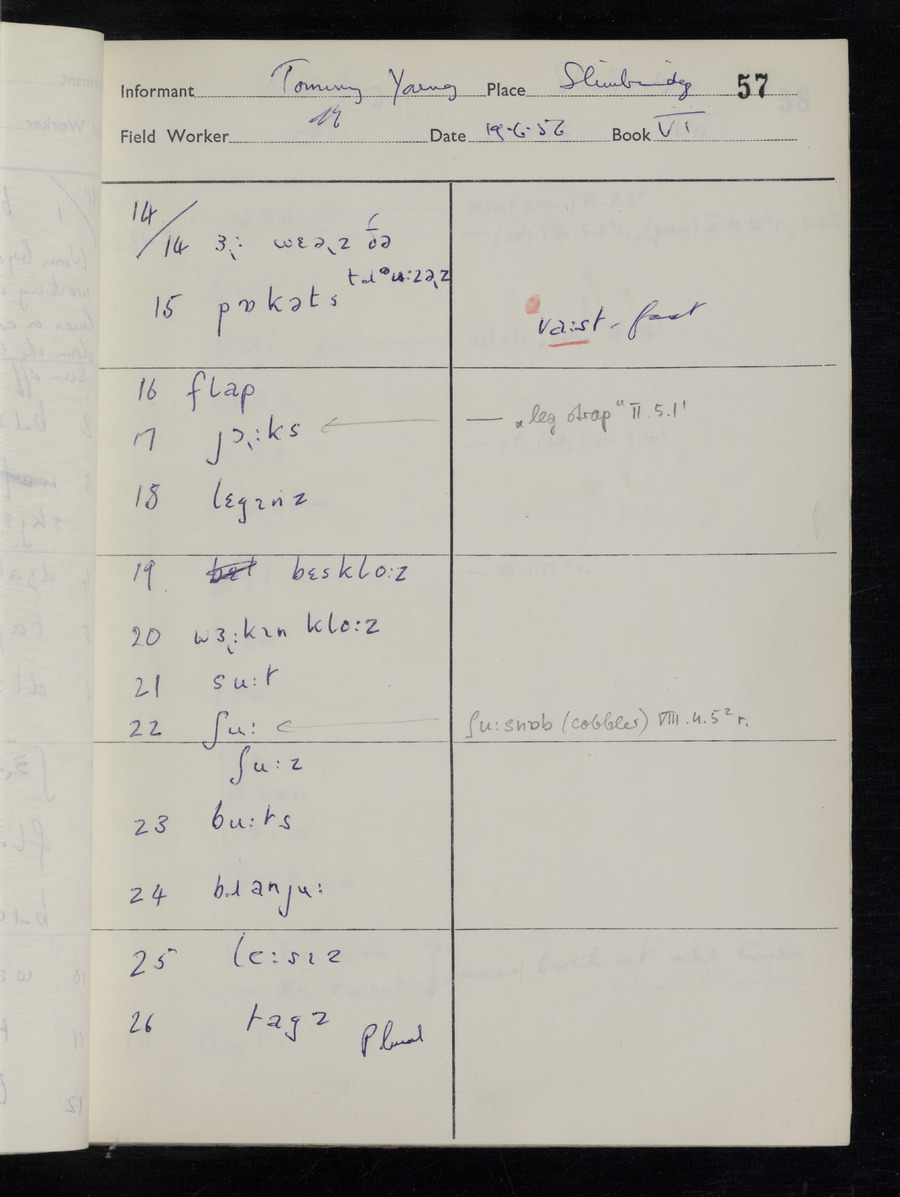 Informant Tommy Young Place Slimbridge 57
Field Worker Date 19·6·56 Book VI
14/14 ɜ˞: wɛə˞z ðə tɹəu:zə˞z
15 pɒkəts
va:st - fast
16 flap
17 jɔ˞:ks ← — „leg strap" II.5.1'
18 legɪnz
19 bɛsklo:z
20 wɜ˞:kɪn klo:z
21 su:t
22 ʃu: ← ʃu:snɒb (cobbles) VIII.4.5² r.
ʃu:z
23 bu:ts
24 bɹanju:
25 le:sɪz
26 tagz Plural